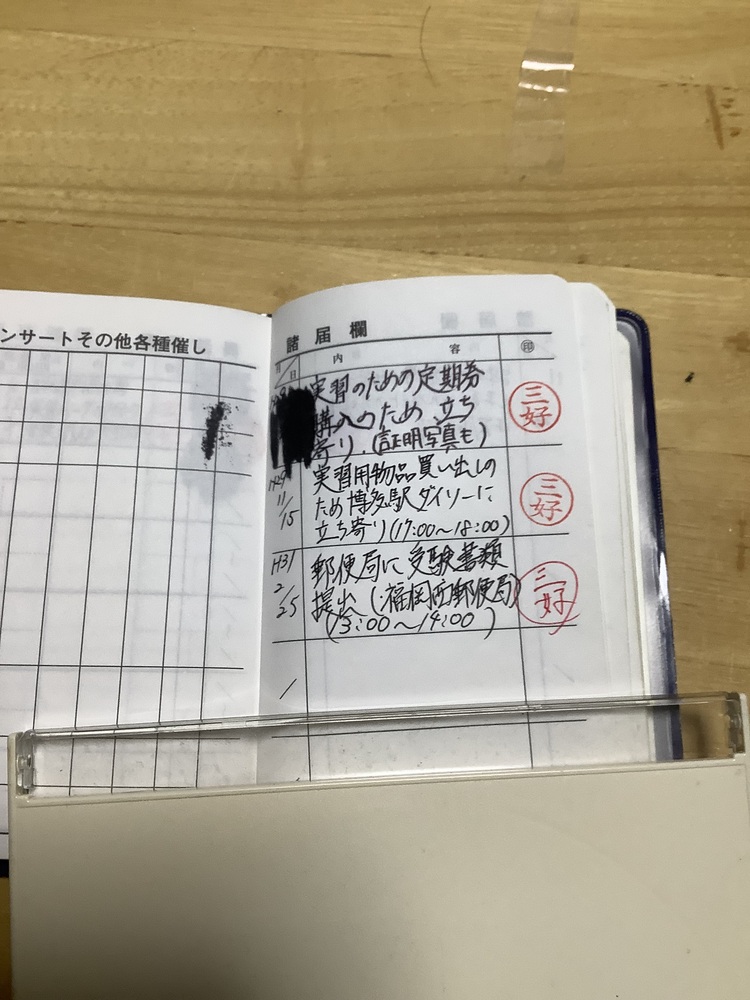 ンサートその他各種催し
諸届欄
月日 内容 ㊞
実習のための定期券
購入のため、立ち
寄り.(証明写真も)
三好
実習用物品買い出しの
11/15 ため博多駅ダイソーに
立ち寄り(17:00〜18:00)
三好
H31 郵便局に受験書類
2/25 提出(福岡西郵便局)
(13:00〜14:00)
三好
/